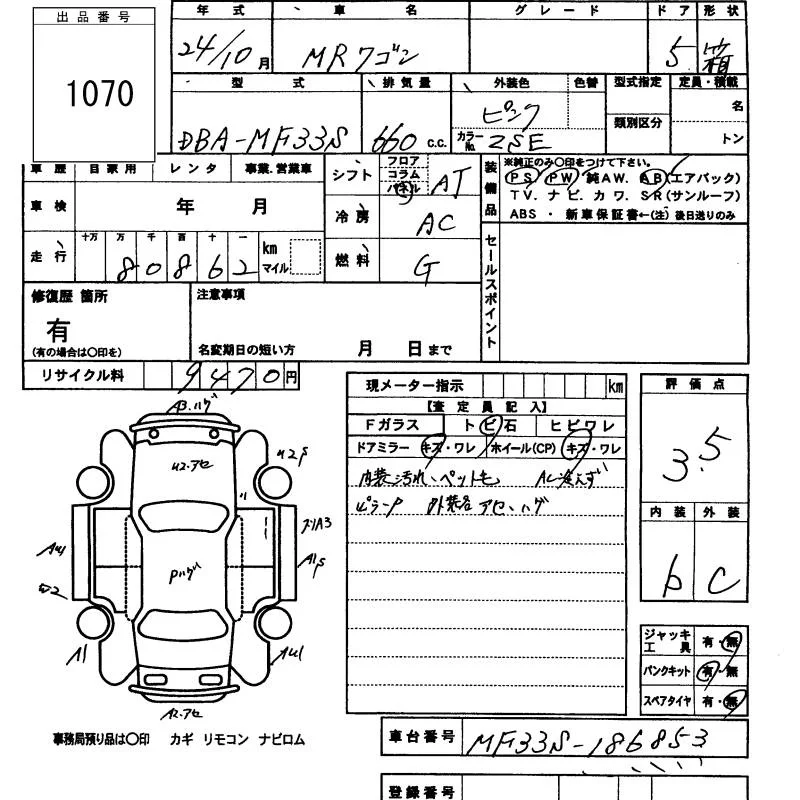 出品番号
1070
年式 車名 グレード ドア 形状
24/10月 MRワゴン 5 箱
型式 排気量 外装色 色替 型式指定 定員・積載
DBA-MF33S 660 c.c. ピンク 類別区分 名
カラーNo. ZSE トン
車歴 自家用 レンタ 事業.営業車
シフト フロア コラム パネル AT
装備品 ※純正のみ○印をつけて下さい。
PS PW 純AW. AB(エアバック)
TV. ナビ. カワ. SR(サンルーフ)
ABS ・ 新車保証書←(注) 後日送りのみ
車検 年 月
冷房 AC
走行 十万 万 千 百 十 一 km マイル
80862
燃料 G
セールスポイント
修復歴 箇所
有
(有の場合は○印を)
注意事項
名変期日の短い方 月 日まで
リサイクル料 9470円
現メーター指示 km
【査定員記入】
Fガラス トビ石 ヒビワレ
ドアミラー キズ・ワレ ホイール(CP) キズ・ワレ
内装汚れ、ペット毛 AC冷えず
ピラーP 外装各アセ、ハゲ
評価点
3.5
内装 外装
b C
A3.ハゲ
U2.アセ
U2P
Pハゲ
A1P
A1
A2.アセ
ジャッキ工具 有・無
パンクキット 有・無
スペアタイヤ 有・無
事務局預り品は○印 カギ リモコン ナビロム
車台番号 MF33S-186853
登録番号